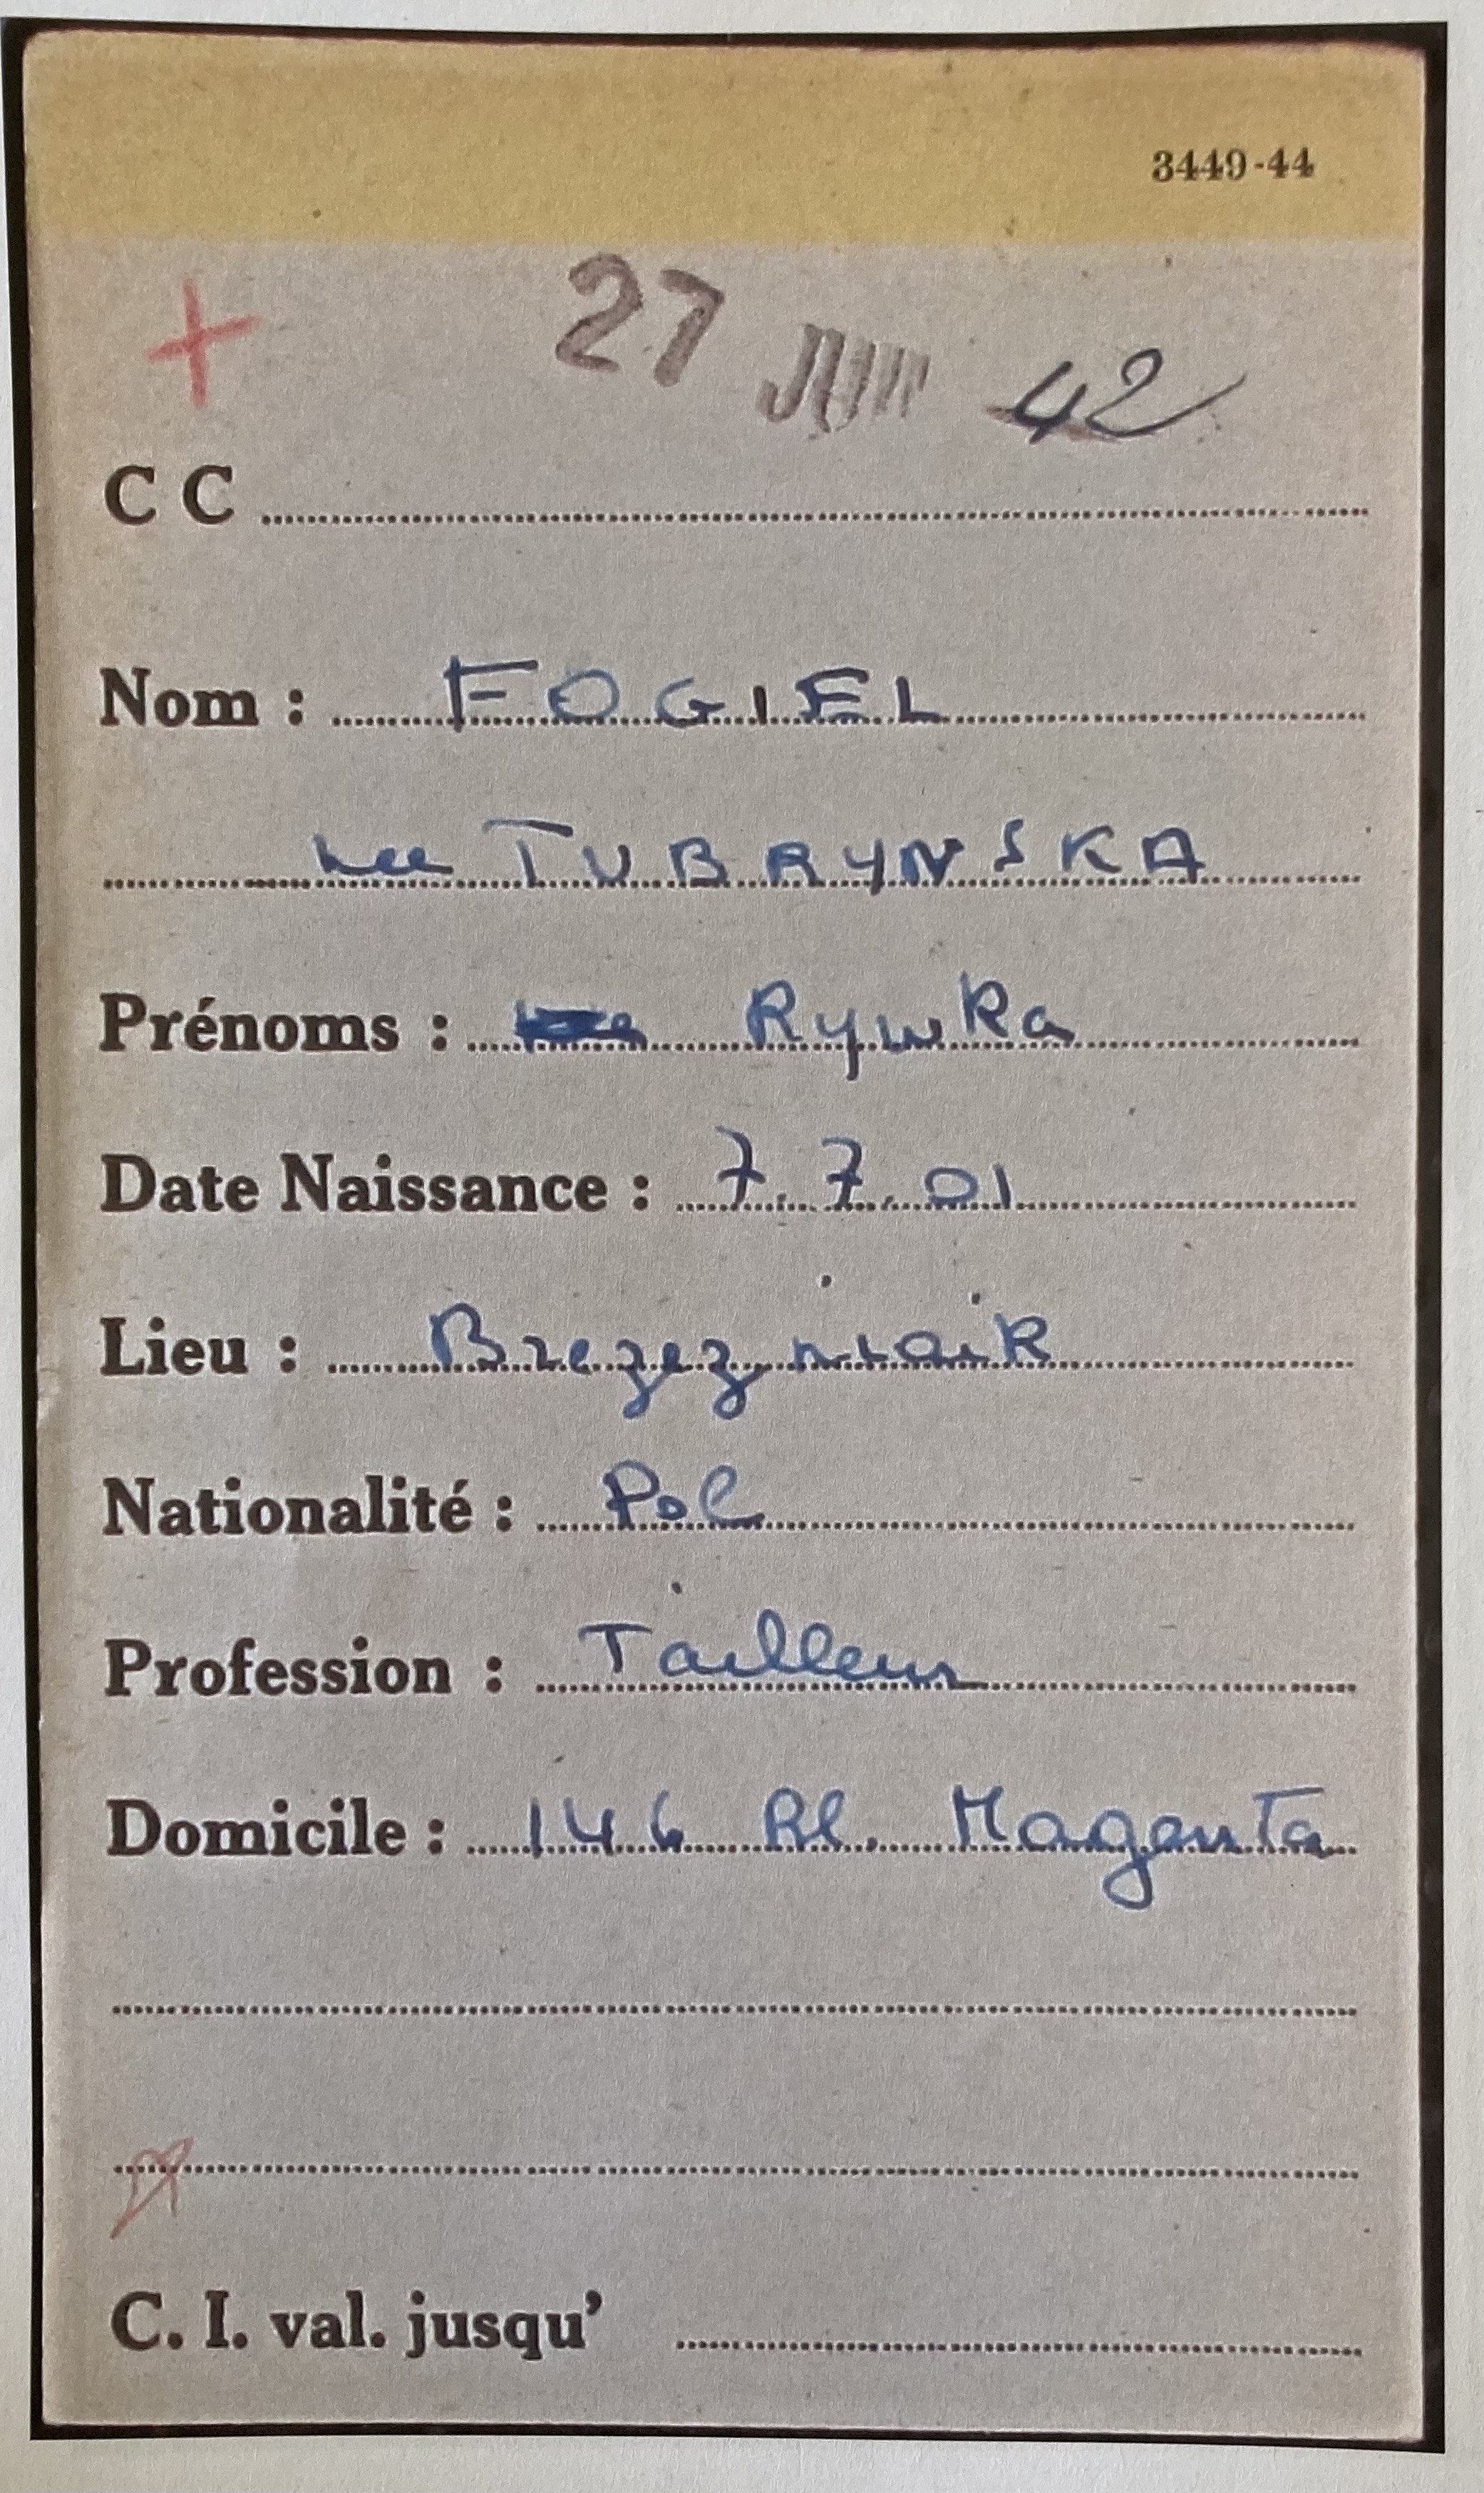 3449-44
27 JUIN 42
C C
Nom : FOGIEL
nee TUBRYNSKA
Prénoms : Rywka
Date Naissance : 7.7.01
Lieu :
Nationalité : Pol
Profession : Tailleur
Domicile : 146 Bl. Magenta
C. I. val. jusqu'